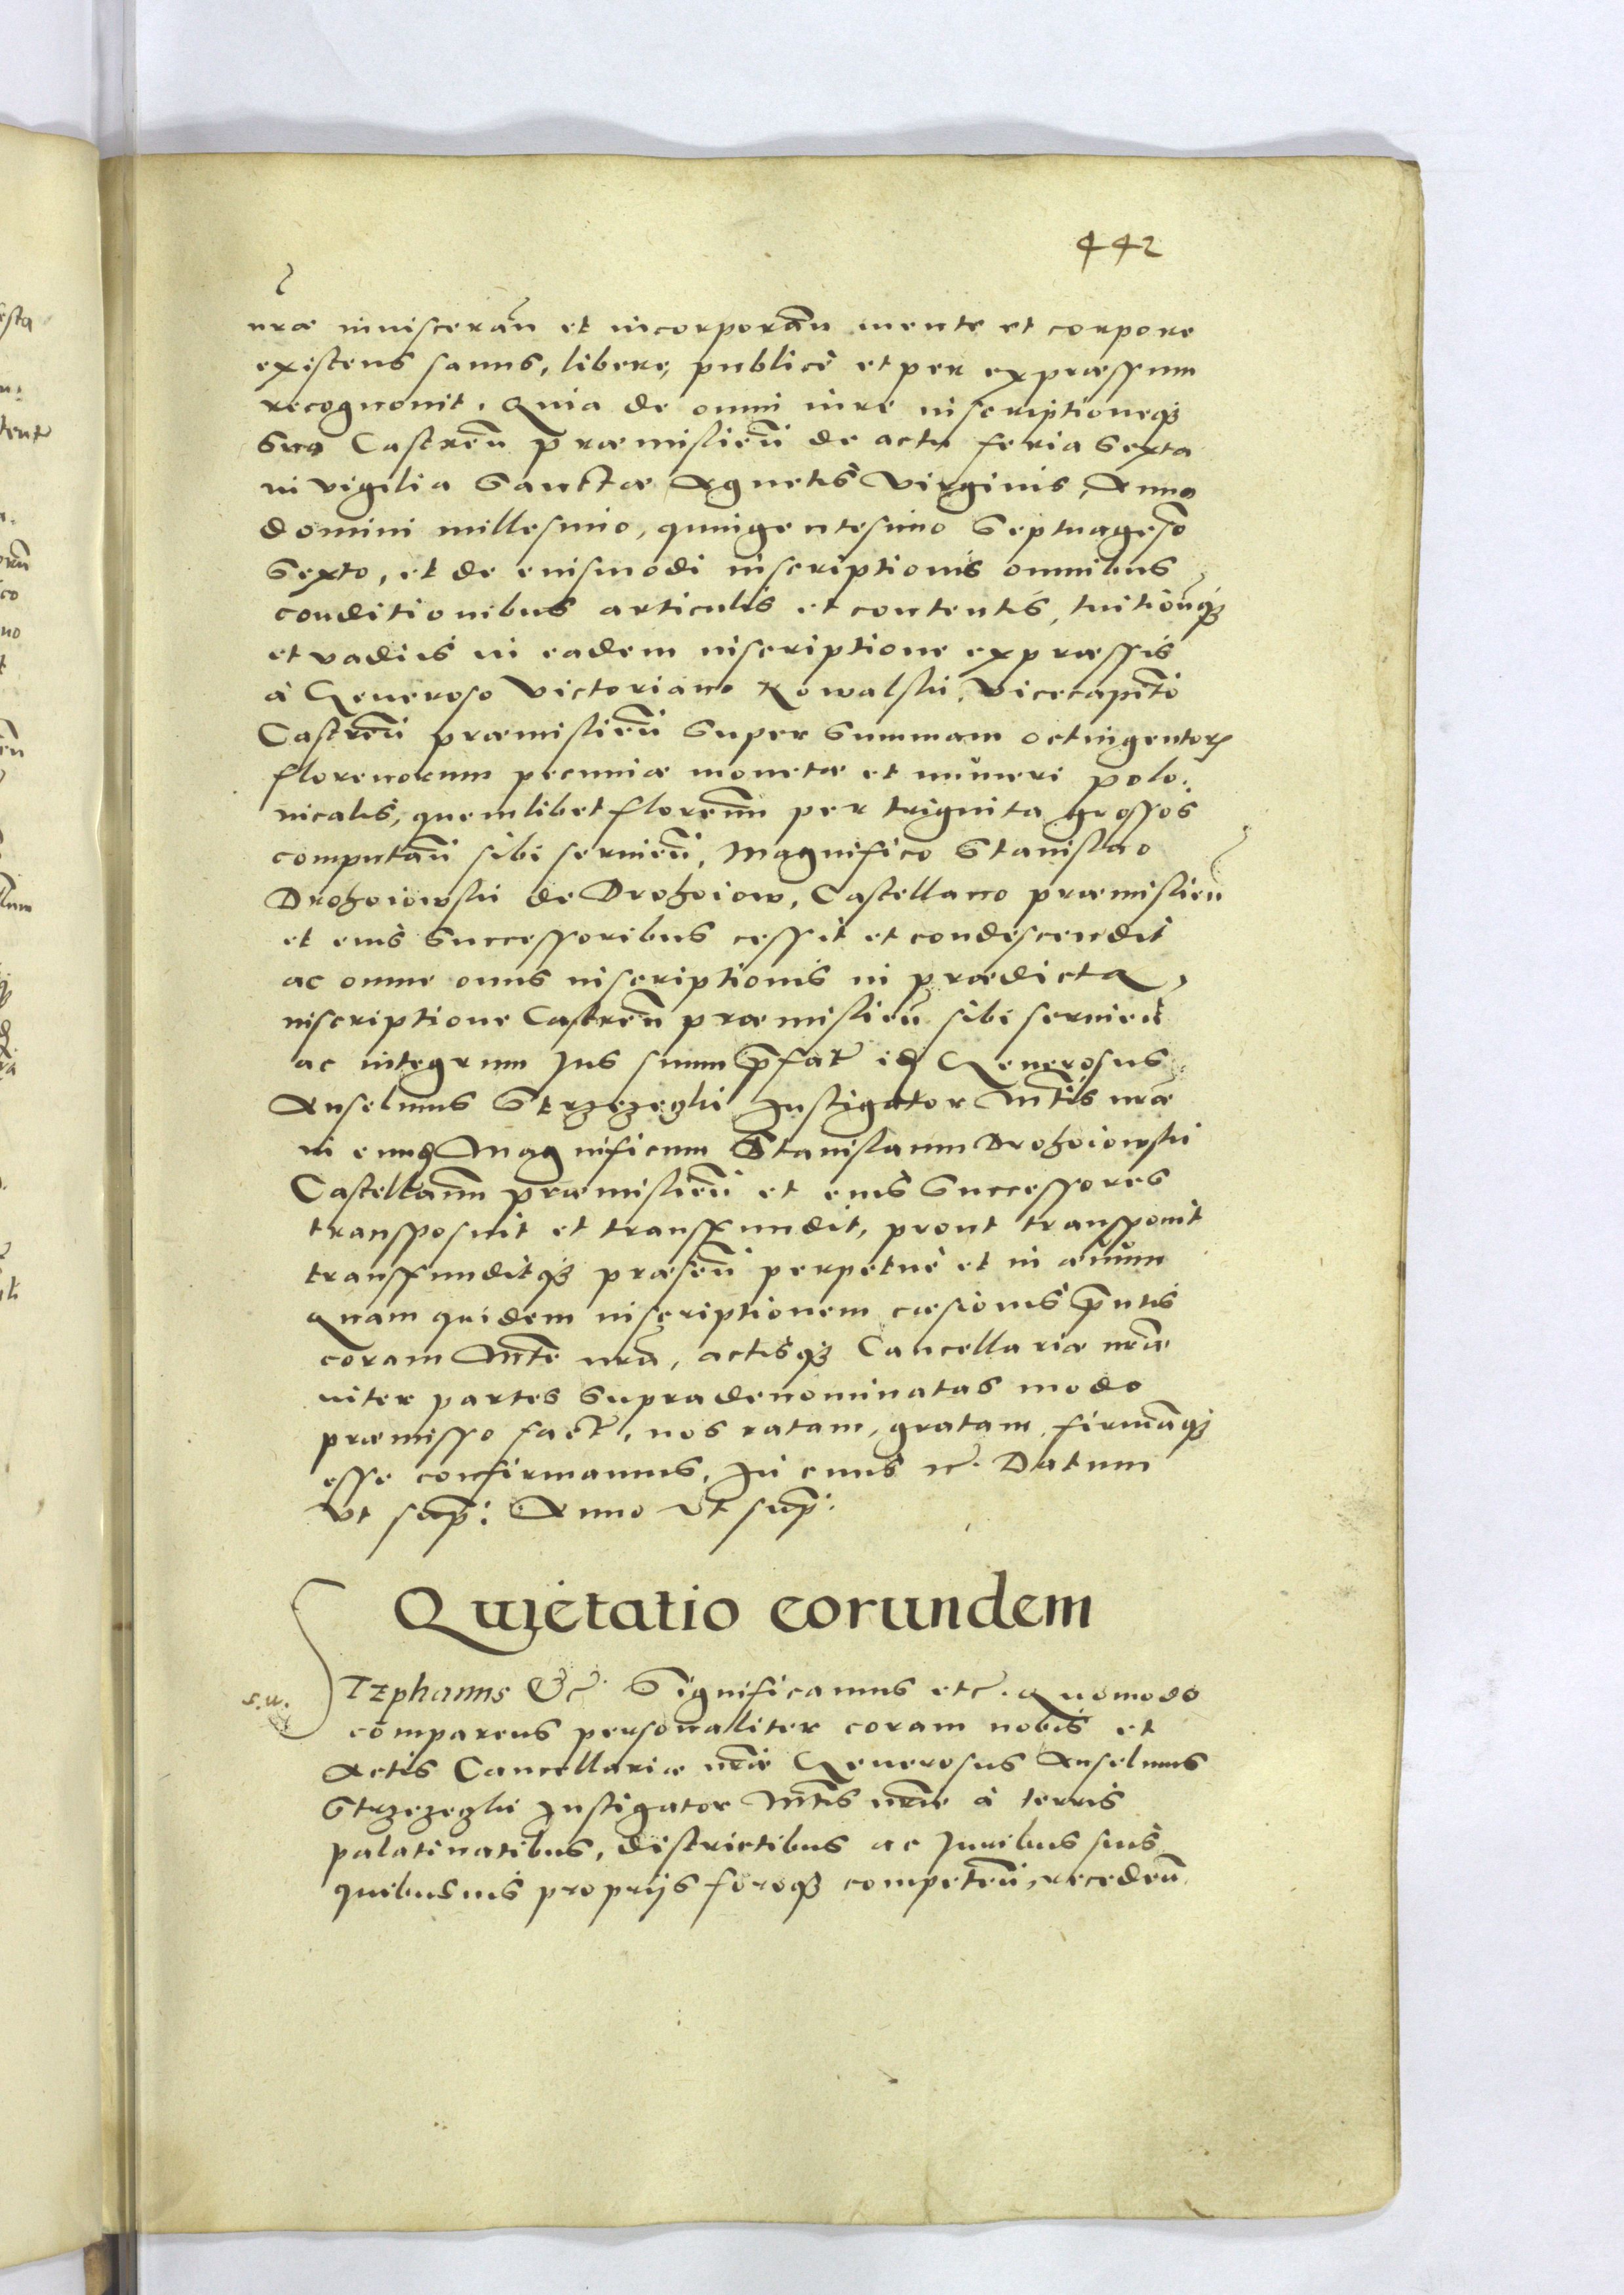 442
nrae invisceran̄ et incorporan̄ mente et corpore
existens sanus, libere, publicè et per expraessum
recognovit. Quia de omni iure inscriptioneq3
sua Castren̄ praemislien̄ de actu feria sexta
in vigilia Sanctae Agnetis Virginis, Anno
Domini millesimo, quingentesimo Septuageso
Sexto, et de eiusmodi inscriptionis omnibus
conditionibus articulis et contentis, tuitionq3
et vadiis in eadem inscriptione expraessis
à Generoso Victoriano Kowalski, Vicecapitō
Castren̄ praemislien̄ super summam octingentor
florenorum pecuniae monetae et numeri polo:
nicalis, quemlibet florenū per triginta grossos
computan̄ sibi servien̄, Magnifico Stanislao
Drohoiowski de Drohoiow, Castellano praemislien̄
et eius successoribus cessit et condescendit
ac omne onus inscriptionis in praedicta
inscriptione Castren̄ praemislien̄ sibi servien̄
ac integrum Jus suum p̄fat id Generosus
Anselmus Strzezeghi Instigator Mtis nrae
in eund Magnificum Stanislaum Drohoiowski
Castellanū praemislien̄ et eius Successores
transposuit et transfundit, prout transponit
transfunditq3 praesen̄ perpetuè et in aevum
Quam quidem inscriptionem caesionis p̄ntis
coram Mte nra, actisq3 Cancellariae nrae
inter partes supradenominatas modo
praemisso fact, nos ratam, gratam, firmāq3
esse confirmamus, In cuius rē. Datum
Vt sup: Anno Vt sup:
Quietatio eorundem
s.u.
STEphanus &c Significamus etc. Quomodo
comparens personaliter coram nobis et
Actis Cancellariae nrae Generosus Anselmus
Strzezeghi Instigator Mtis nrae à terris
palatinatibus, districtibus ac Juribus suis
quibusvis proprijs foroq3 competen̄, receden̄